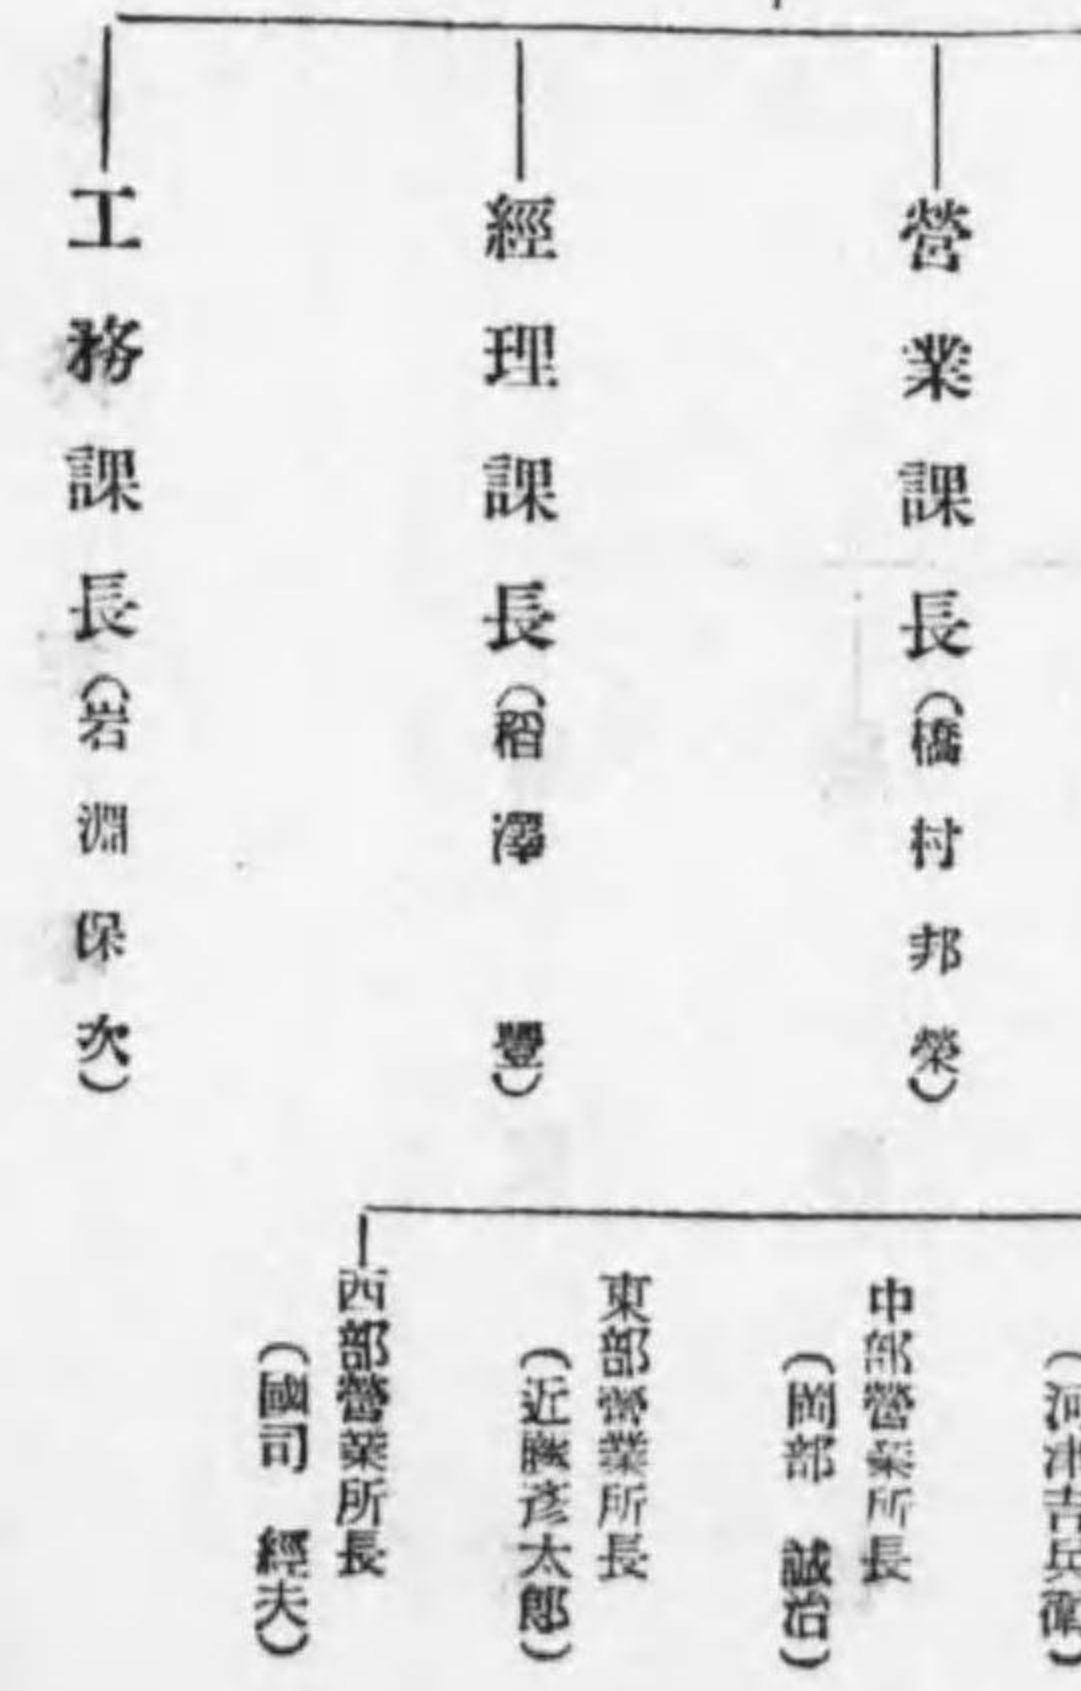 營業課長(橋村邦榮)
經理課長(稻澤 豐)
工務課長(岩淵保次)
(河津吉兵衞)
中部營業所長
(岡部 誠治)
東部營業所長
(近藤彥太郎)
西部營業所長
(國司 經夫)